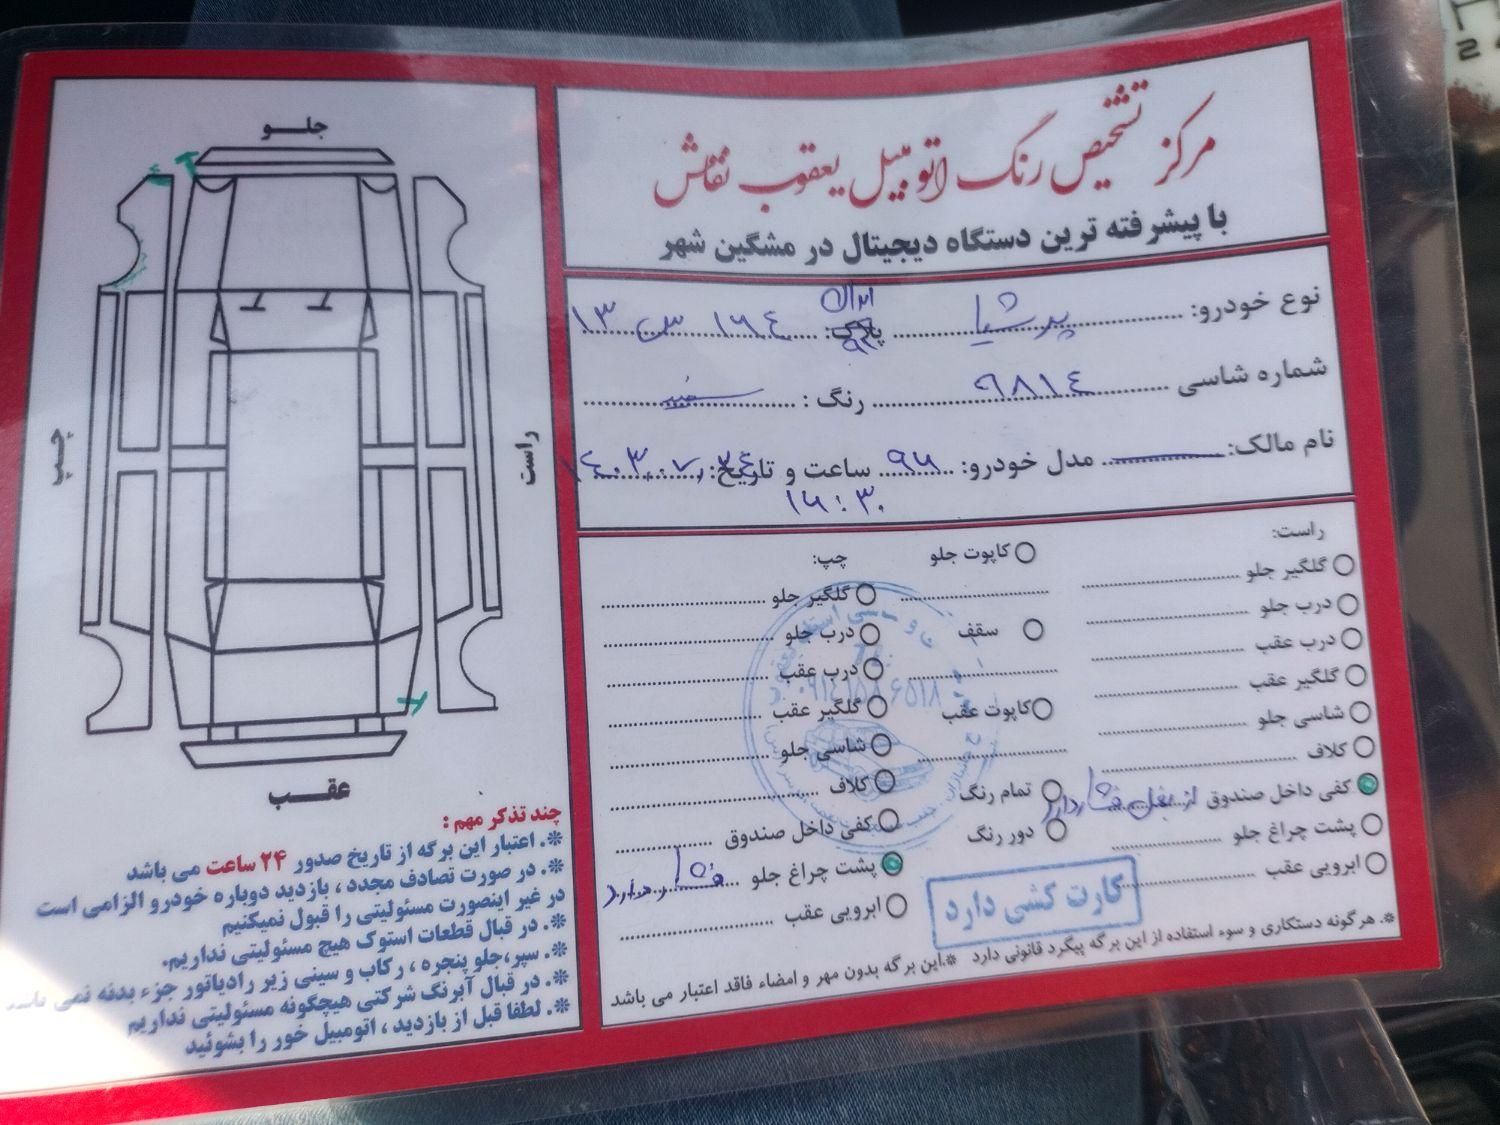 مرکز تشخیص رنگ اتومبیل یعقوب نقاش
با پیشرفته ترین دستگاه دیجیتال در مشگین شهر
نوع خودرو: پرشیا پلاک: ایران ۱۶۴ س ۱۳
شماره شاسی ۹۸۱۴ رنگ : سفید
نام مالک: مدل خودرو: ۹۶ ساعت و تاریخ: ۱۴۰۳،۰۷،۲۴
۱۶:۳۰
راست:
گلگیر جلو
درب جلو
درب عقب
گلگیر عقب
شاسی جلو
کلاف
کفی داخل صندوق از بغل فشار دارد
پشت چراغ جلو
ابرویی عقب
کاپوت جلو
سقف
کاپوت عقب
تمام رنگ
دور رنگ
چپ:
گلگیر جلو
درب جلو
درب عقب
گلگیر عقب
شاسی جلو
کلاف
کفی داخل صندوق
پشت چراغ جلو فشار دارد
ابرویی عقب
کارت کشی دارد
*. هرگونه دستکاری و سوء استفاده از این برگه پیگرد قانونی دارد *.این برگه بدون مهر و امضاء فاقد اعتبار می باشد
جلـــو
چپ
راست
عقـــب
چند تذکر مهم :
*. اعتبار این برگه از تاریخ صدور ۲۴ ساعت می باشد
*. در صورت تصادف مجدد ، بازدید دوباره خودرو الزامی است
در غیر اینصورت مسئولیتی را قبول نمیکنیم
*. در قبال قطعات استوک هیچ مسئولیتی نداریم.
*. سپر،جلو پنجره ، رکاب و سینی زیر رادیاتور جزء بدنه نمی باشد
*. در قبال آبرنگ شرکتی هیچگونه مسئولیتی نداریم
*. لطفا قبل از بازدید ، اتومبیل خور را بشوئید